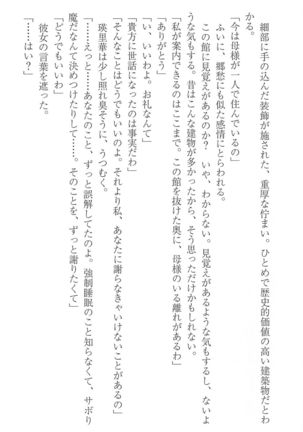 細部に手の込んだ装飾が施された、重厚な佇まい。ひとめで歴史的価値の高い建築物だとわ
かる。
「今は母様が一人で住んでいるの」
　ふいに、郷愁にも似た感情にとらわれる。
　この館に見覚えがあるのか？　いや、わからない。見覚えがあるような気もするし、ないよ
うな気もする。昔はこんな建物が多かったから、そう思っただけかもしれない。
「私が案内できるのはここまで。この館を抜けた奥に、母様のいる離れがあるわ」
「ありがとう」
「い、いいわよ。お礼なんて」
「貴方に世話になったのは事実だわ」
「そんなことはどうでもいいのよ。それより私、あなたに謝らなきゃいけないことがあるの」
　瑛里華は少し照れ臭そうに、うつむく。
「……えっと……あなたのこと、ずっと誤解してたのよ。強制睡眠のこと知らなくて、サボり
魔だなんて決めつけたりして……。そのことを、ずっと謝りたくて」
「どうでもいいわ」
　彼女の言葉を遮った。
「……はい？」